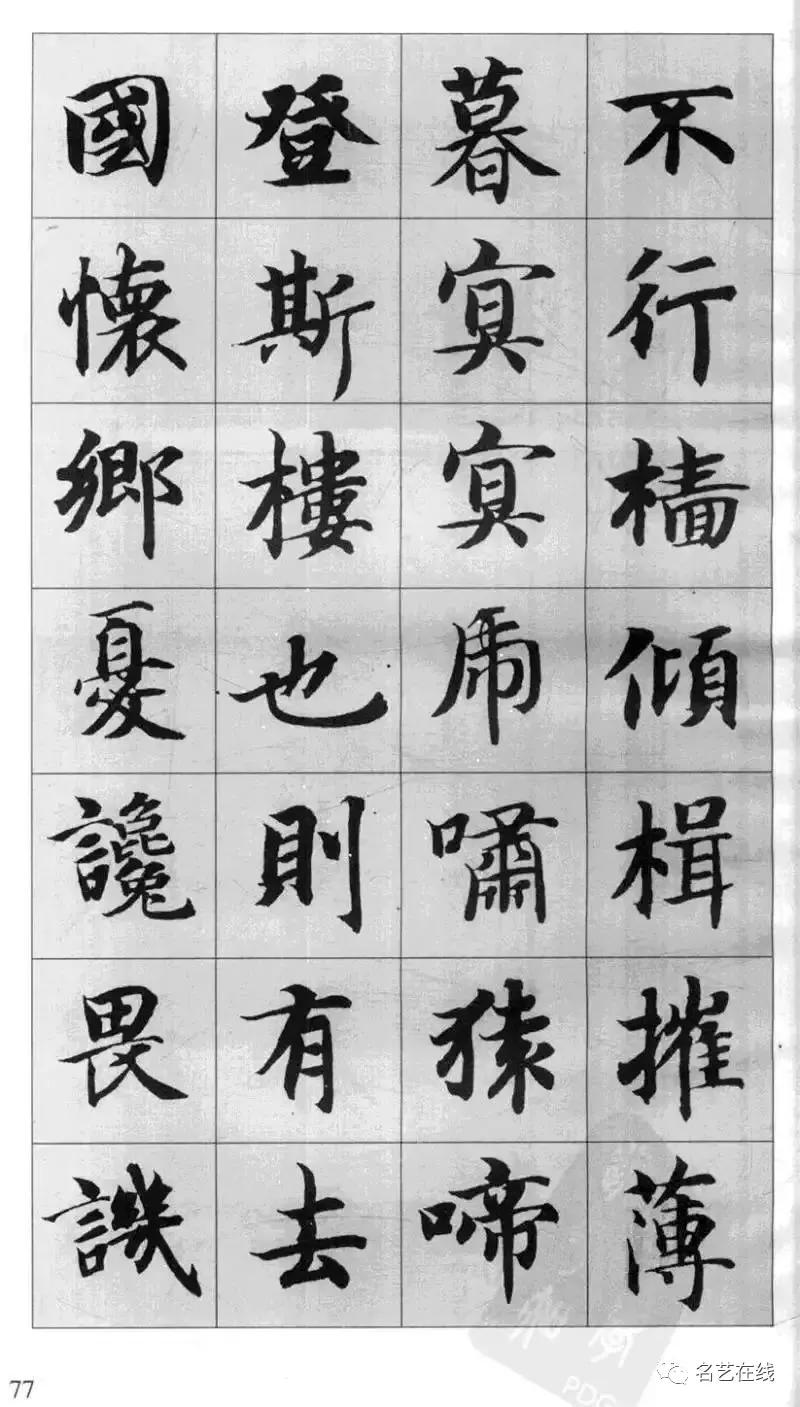 不行檣傾楫摧薄
暮冥冥虎嘯猿啼
登斯樓也則有去
國懷鄉憂讒畏譏
77
名艺在线
PDG